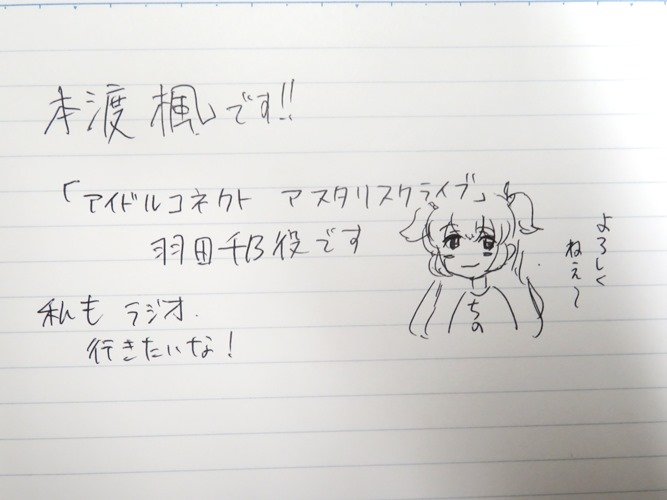 本渡 楓です!!
「アイドルコネクト アスタリスクライブ」
羽田千乃役です
私も ラジオ
行きたいな!
よろしく
ねぇ〜
ちの